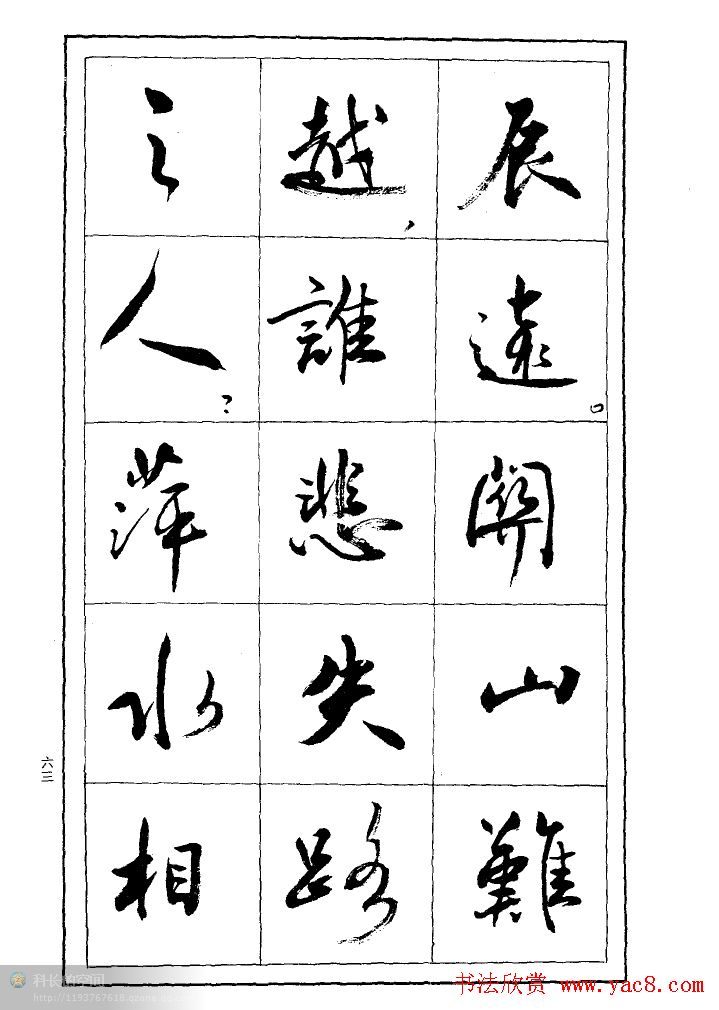 辰遠。關山難
越，誰悲失路
之人？萍水相
六三
科长的空间
书法欣赏 www.yac8.com